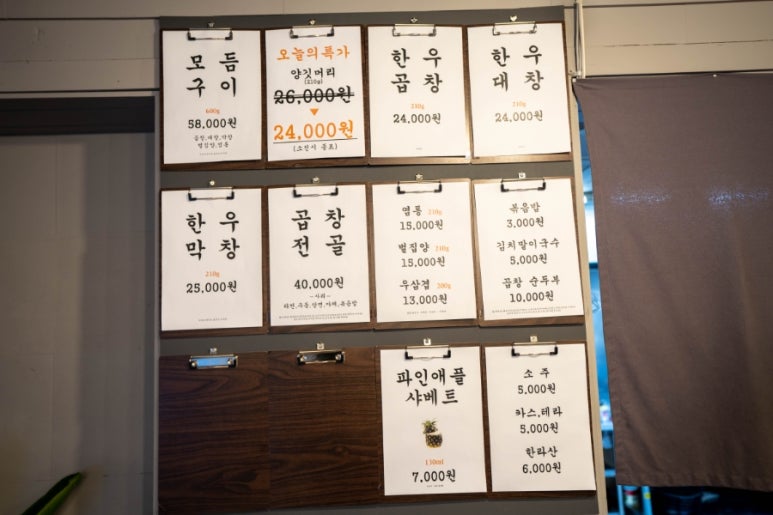 모듬
구이
600g
58,000원
곱창,대창,막창
벌집양,염통
오늘의특가
양깃머리
(210g)
26,000원
24,000원
(소진시 종료)
한우
곱창
210g
24,000원
한우
대창
210g
24,000원
한우
막창
210g
25,000원
곱창
전골
40,000원
-사리-
라면,우동,당면,야채,볶음밥
염통 210g
15,000원
벌집양 210g
15,000원
우삼겹 200g
13,000원
볶음밥
3,000원
김치말이국수
5,000원
곱창 순두부
10,000원
파인애플
샤베트
130ml
7,000원
소주
5,000원
카스,테라
5,000원
한라산
6,000원